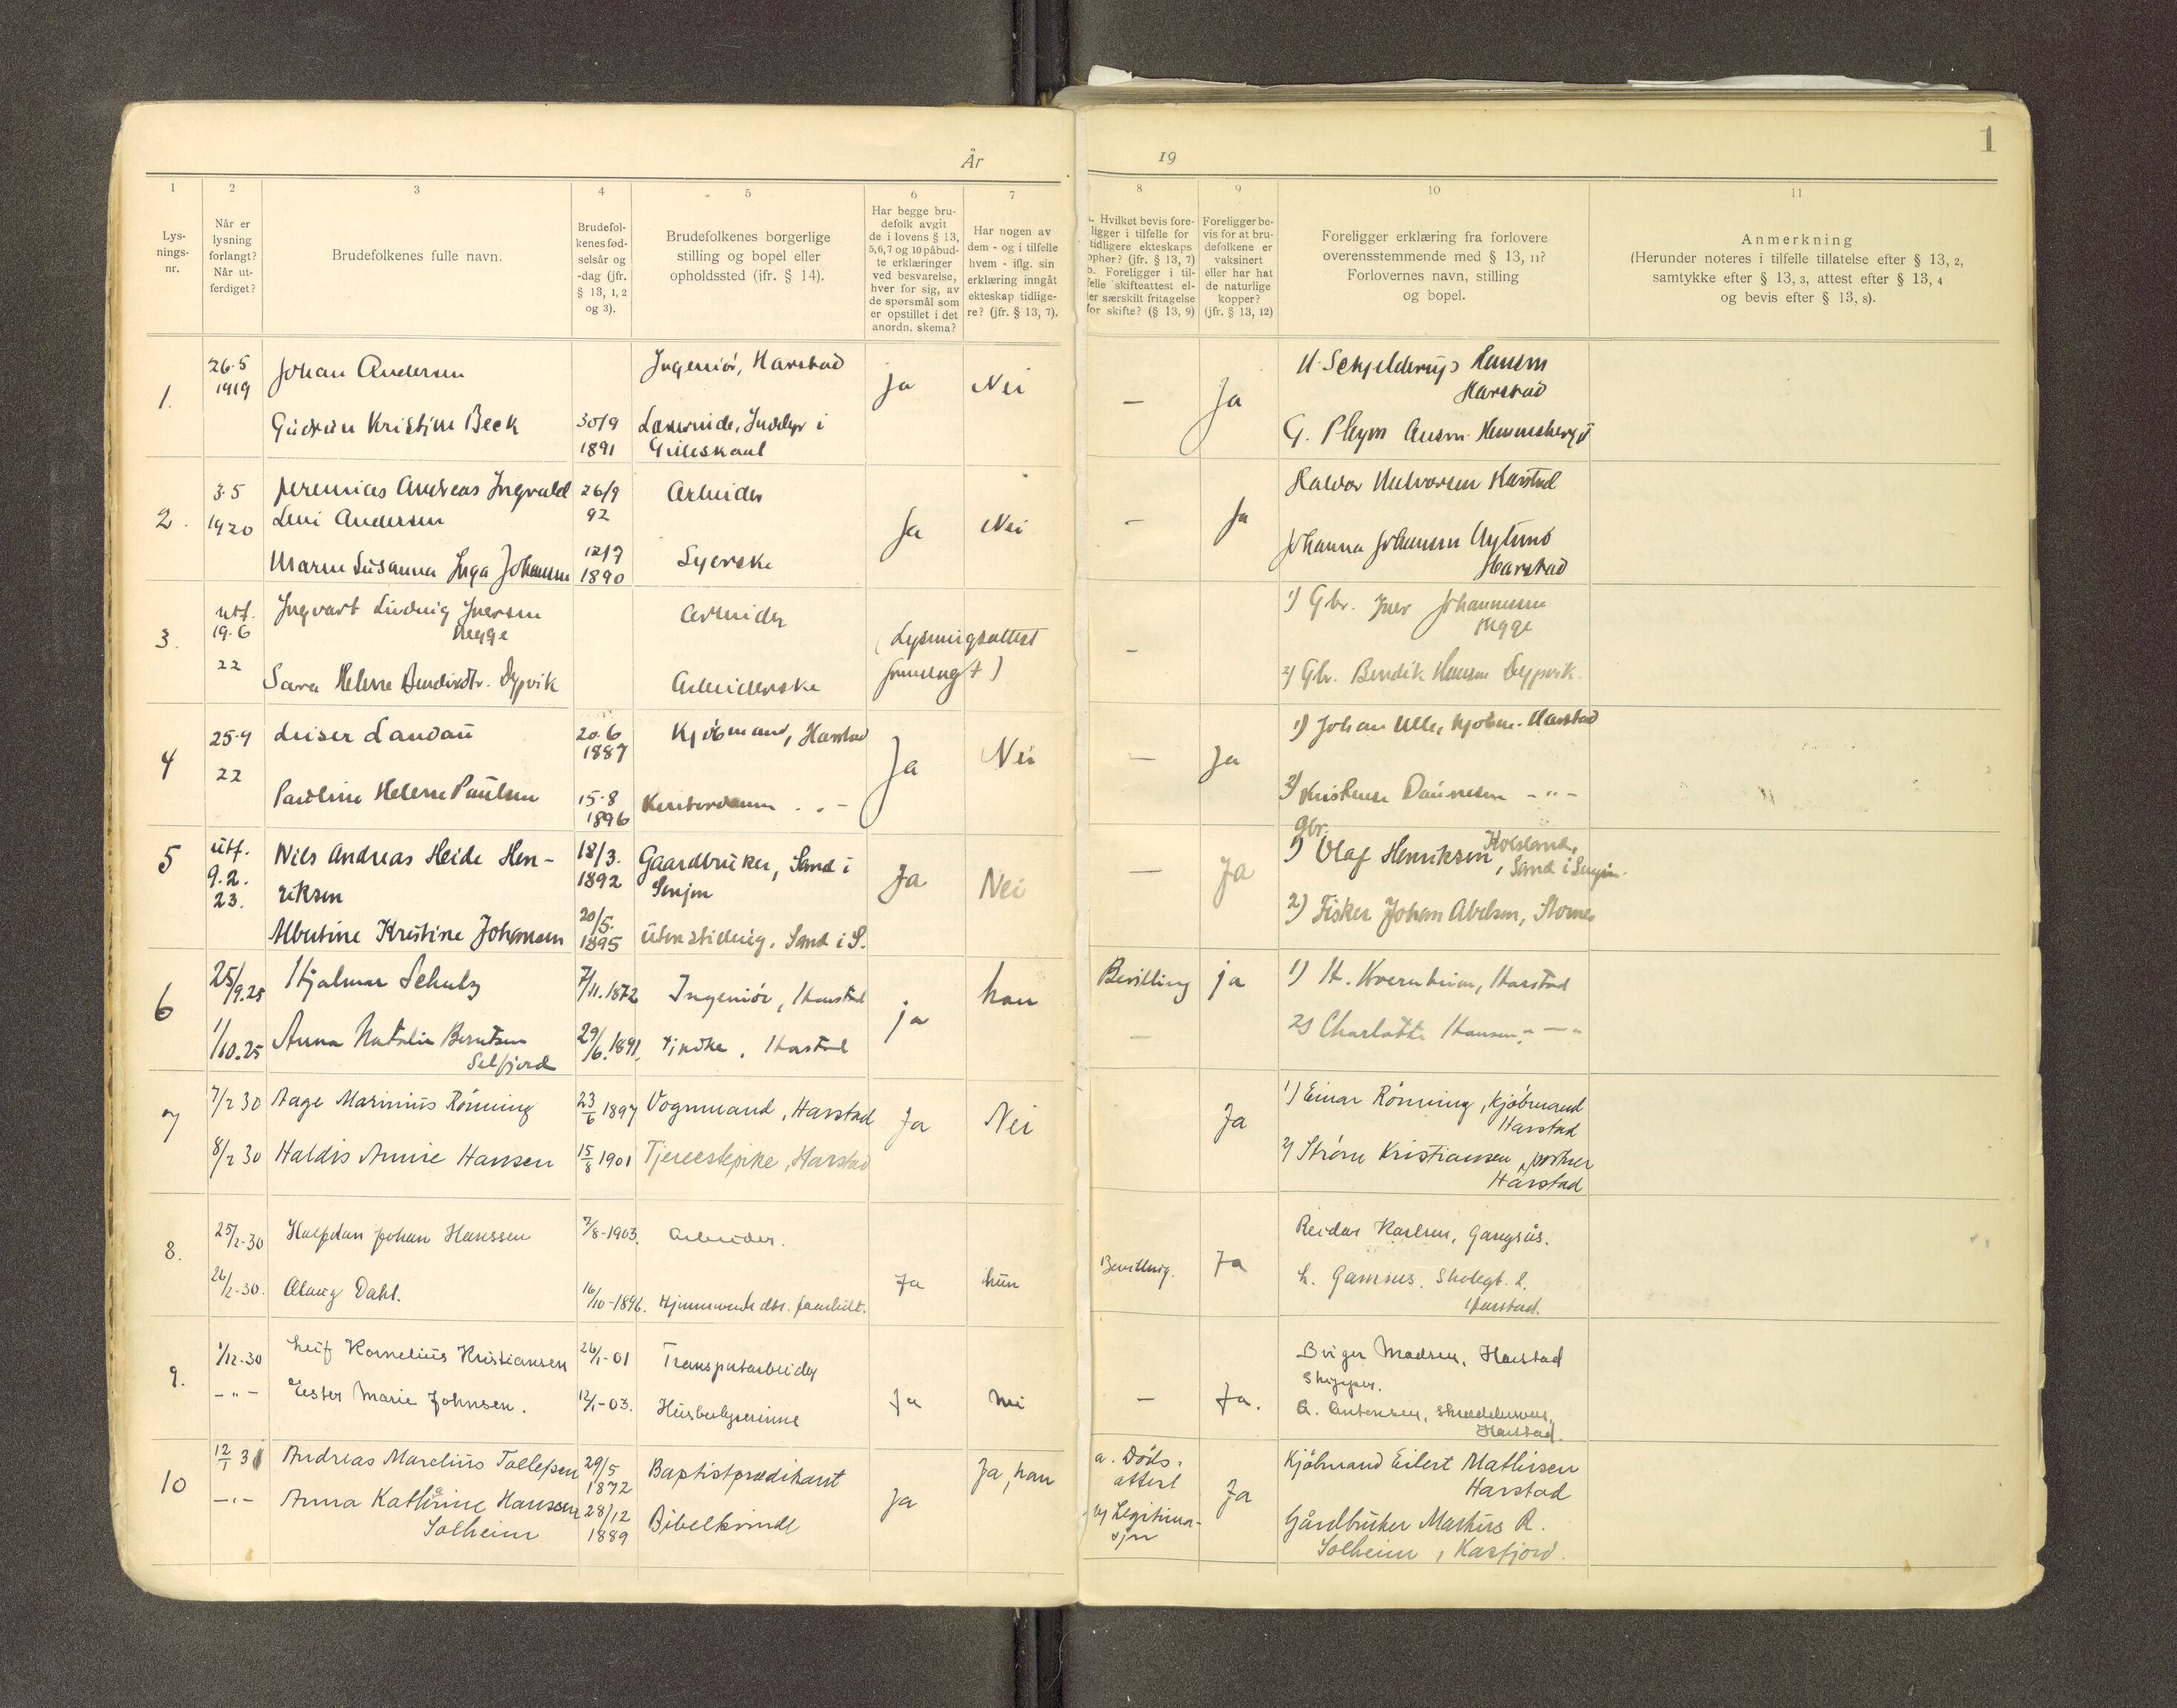 År 19
1
1
2
3
4
5
6
7
8
9
10
11
Lys-
nings-
nr.
Når er
lysning
forlangt?
Når ut-
ferdiget?
Brudefolkenes fulle navn.
Brudefol-
kenes fød-
selsår og
-dag (jfr.
§ 13, 1, 2
og 3).
Brudefolkenes borgerlige
stilling og bopel eller
opholdssted (jfr. § 14).
Har begge bru-
defolk avgit
de i lovens § 13,
5,6,7 og 10 påbud-
te erklæringer
ved besvarelse,
hver for sig, av
de spørsmål som
er opstillet i det
anordn. skema?
Har nogen av
dem - og i tilfelle
hvem - iflg. sin
erklæring inngåt
ekteskap tidlige-
re? (jfr. § 13, 7).
Hvilket bevis fore-
ligger i tilfelle for
tidligere ekteskaps
ophør? (jfr. § 13, 7)
b. Foreligger i til-
felle skifteattest el-
ler særskilt fritagelse
for skifte? (§ 13, 9)
Foreligger be-
vis for at bru-
defolkene er
vaksinert
eller har hat
de naturlige
kopper?
(jfr. § 13, 12)
Foreligger erklæring fra forlovere
overensstemmende med § 13, 11?
Forlovernes navn, stilling
og bopel.
Anmerkning
(Herunder noteres i tilfelle tillatelse efter § 13, 2,
samtykke efter § 13, 3, attest efter § 13, 4
og bevis efter § 13, 8).
1.
26.5
1919
Johan Andersen
Ingeniør, Harstad
Gudrun Kristine Beck
30/9
1891
Lærerinde, Inndyr i
Gilleskaal
Ja
Nei
—
Ja
H. Schjelderup Hansen
Harstad
G. Pleym
2.
3.5
1920
Jeremias Andreas Ingvald
Leni Andersen
26/9
92
Arbeider
Maren Susanna Inga Johansen
12/7
1890
Syerske
Ja
Nei
—
Ja
Halvor Halvorsen Harstad
Johanna Johansen
Harstad
3.
utf.
19.6
22
Ingvart Ludvig Iversen
Arbeider
Sara Helene Bendiksdtr. Dypvik
Arbeiderske
(Lysningsattest
fremlagt)
—
1) Gbr. Iver Johannesen
2) Gbr. Bendik Hansen Dypvik.
4
25.9
22
Leiser Landau
20.6
1887
Kjøbmand, Harstad
Pauline Helene Paulsen
15.8
1896
Kontordame - " -
Ja
Nei
—
Ja
1) Johan Ulle, kjøbm. Harstad
2) Kristense - " -
5
utf.
9.2.
23.
Nils Andreas Heide Hen-
riksen
18/3.
1892
Gaardbruker, Sand i
Senjen
Albertine Kristine Johansen
20/5.
1895
uten stilling, Sand i S.
Ja
Nei
—
Ja
gbr.
1) Olaf Henriksen, Sand i Senjen.
2) Fisker Johan Abelsen, Stornes
6
25/9.25
1/10.25
Hjalmar Schulz
7/11.1872
Ingeniør, Harstad
Anna Natalie Berntsen
Selfjord
29/6.1891.
Harstad
ja
han
Bevilling
—
ja
1) H. Kvernheim, Harstad
2) Charlotte Hansen - " -
7
7/2 30
Aage Marinius Rönning
23/6 1897
Vognmand, Harstad
8/2 30
Haldis Annie Hansen
15/8 1901
Tjenestepike, Harstad
Ja
Nei
Ja
1) Einar Rönning, kjøbmand
Harstad
2) Ström Kristiansen, portner
Harstad
8.
25/2-30
Halfdan Johan Hanssen
7/8-1903.
Arbeider.
26/2-30.
Olaug Dahl.
16/10-1896.
Ja
hun
Bevilling.
Ja
Reidar Karlsen, Gangsås.
h. Gamnes. Skolegt. 2.
Harstad.
9.
1/12-30
Leif Kornelius Kristiansen
26/1-01
Transportarbeider
- " -
Ester Marie Johnsen.
12/1-03.
Husbestyrerinne
Ja
nei
—
Ja.
Birger Madsen, Harstad
Skipper.
A. Antonsen,
Harstad.
10
12/1 31
Andreas Marelius Tollefsen
29/5
1872
Baptistprædikant
- " -
Anna Kathrine Hanssen
Solheim
28/12
1889
Bibelkvinde
Ja
Ja, han
a. Döds-
attest
b) Legitima-
sjon
Ja
Kjøbmand Eilert Mathisen
Harstad
Gårdbruker Markus R.
Solheim, Kasfjord.